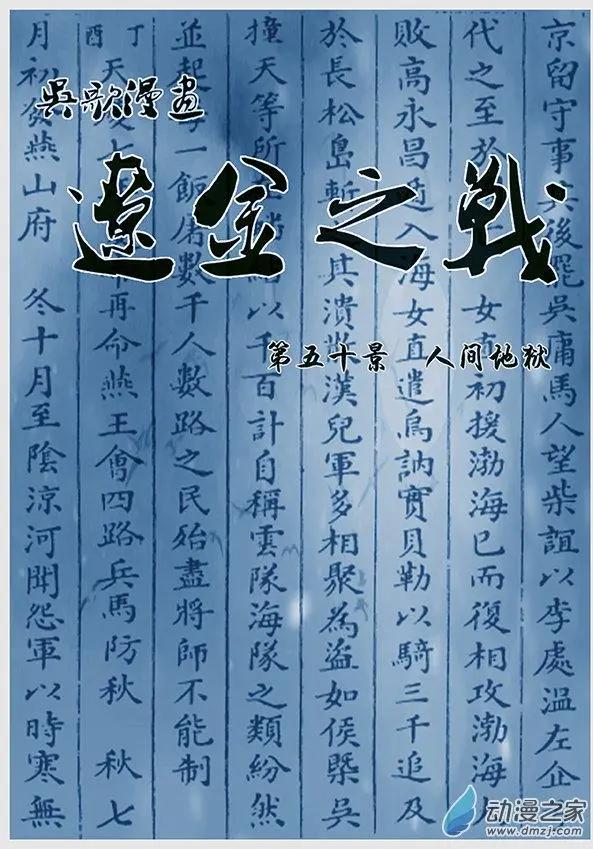 吳歌漫畫
遼金之戰
第五十景 人间地狱
京留守事其後罷吳庸馬人望柴誼以李處溫左企
代之至於女直初援渤海已而復相攻渤海
敗高永昌遁入海女直遣烏訥實貝勒以騎三千追及
於長松島斬其潰散漢兒軍多相聚為盜如侯槩吳
撞天等所以千百計自稱雲隊海隊之類紛然
並起一飯屠數千人數路之民殆盡將師不能制
丁酉 天七再命燕王會四路兵馬防秋 秋七
月初發燕山府 冬十月至陰涼河聞怨軍以時寒無
动漫之家
www.dmzj.com